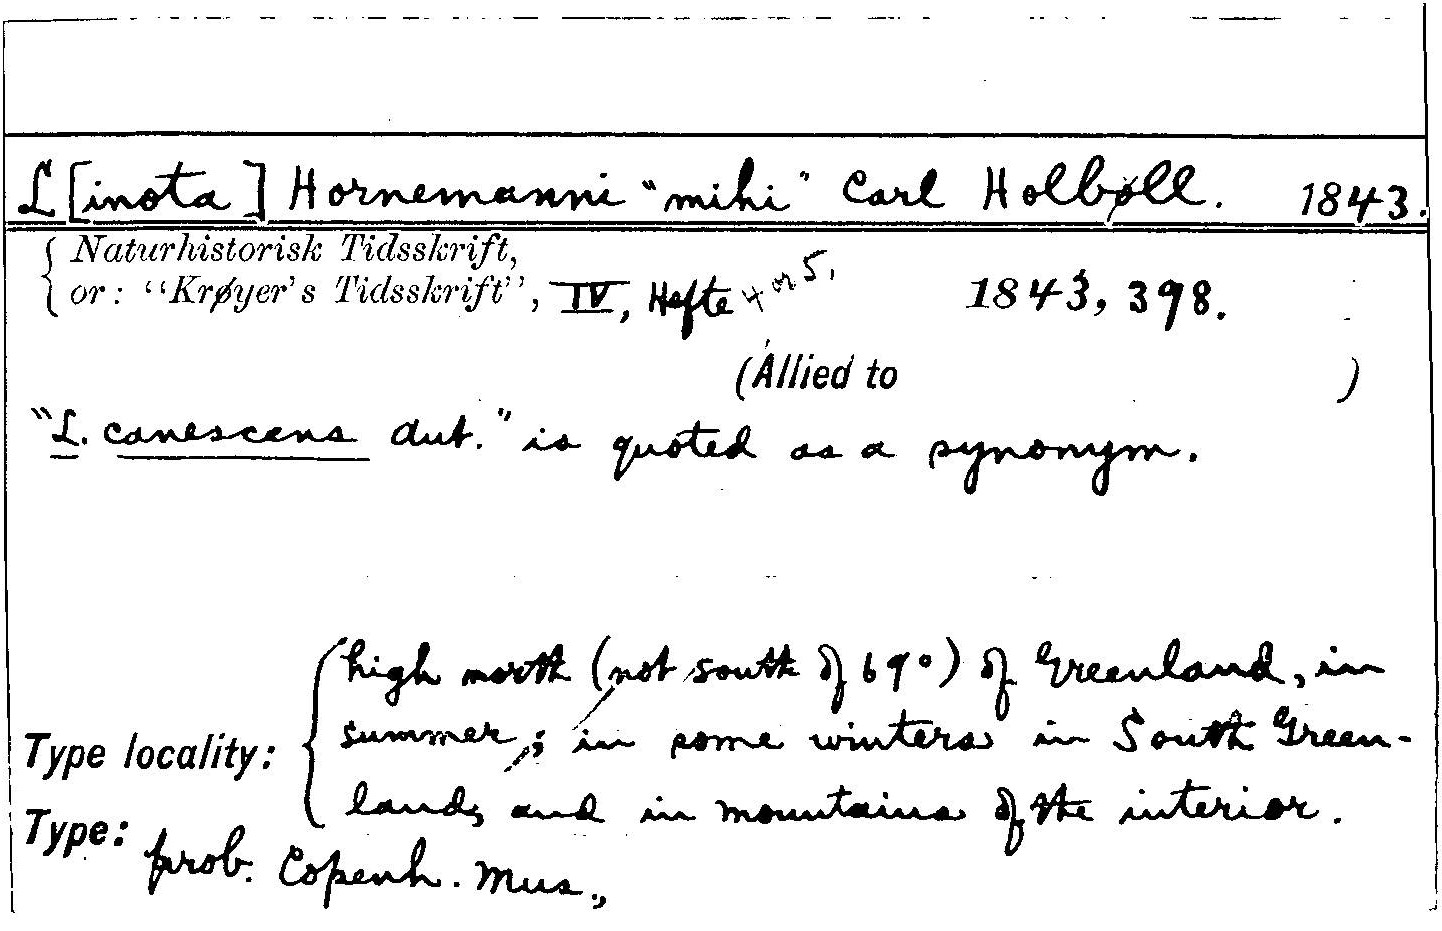 L[inota] Hornemanni "mihi" Carl Holbøll. 1843.
{ Naturhistorisk Tidsskrift,
or: "Krøyer's Tidsskrift", IV, Hefte 4 or 5, 1843, 398.
(Allied to )
"L. canescens Aut." is quoted as a synonym.
high north (not south of 69°) of Greenland, in
summer; in some winters in South Green-
Type locality: {
land, and in mountains of the interior.
Type: prob. Copenh. Mus.,